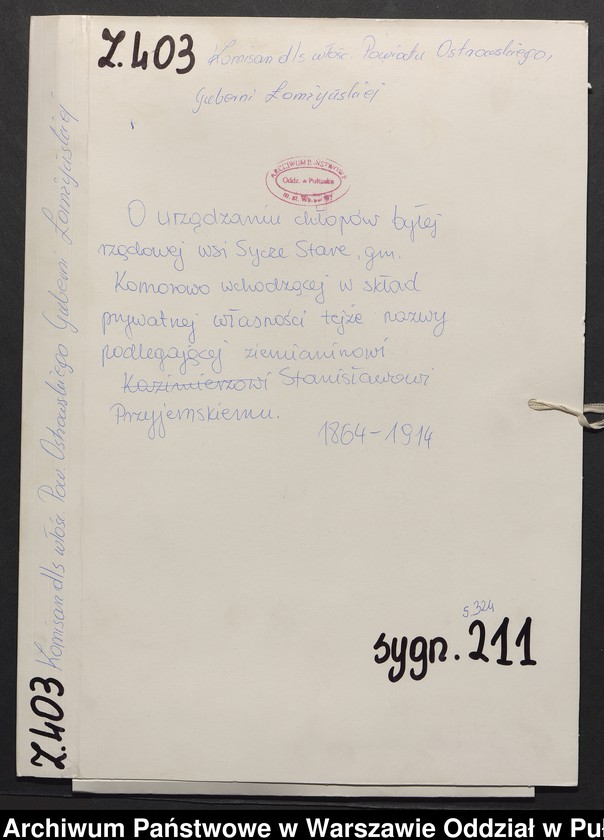 Z.403 Komisarz d/s włośc. Powiatu Ostrowskiego,
Guberni Łomżyńskiej
ARCHIWUM PAŃSTWOWE
Oddz. w Pułtusku
m. st. Warszawy
O urządzaniu chłopów byłej
rządowej wsi Sycze Stare, gm.
Komorowo wchodzącej w skład
prywatnej własności tejże nazwy
podlegającej ziemianinowi
Kazimierzowi Stanisławowi
Przyjemskiemu.
1864-1914
s. 324
sygn. 211
Z.403 Komisarz d/s włośc. Pow. Ostrowskiego Guberni Łomżyńskiej
Archiwum Państwowe w Warszawie Oddział w Puł